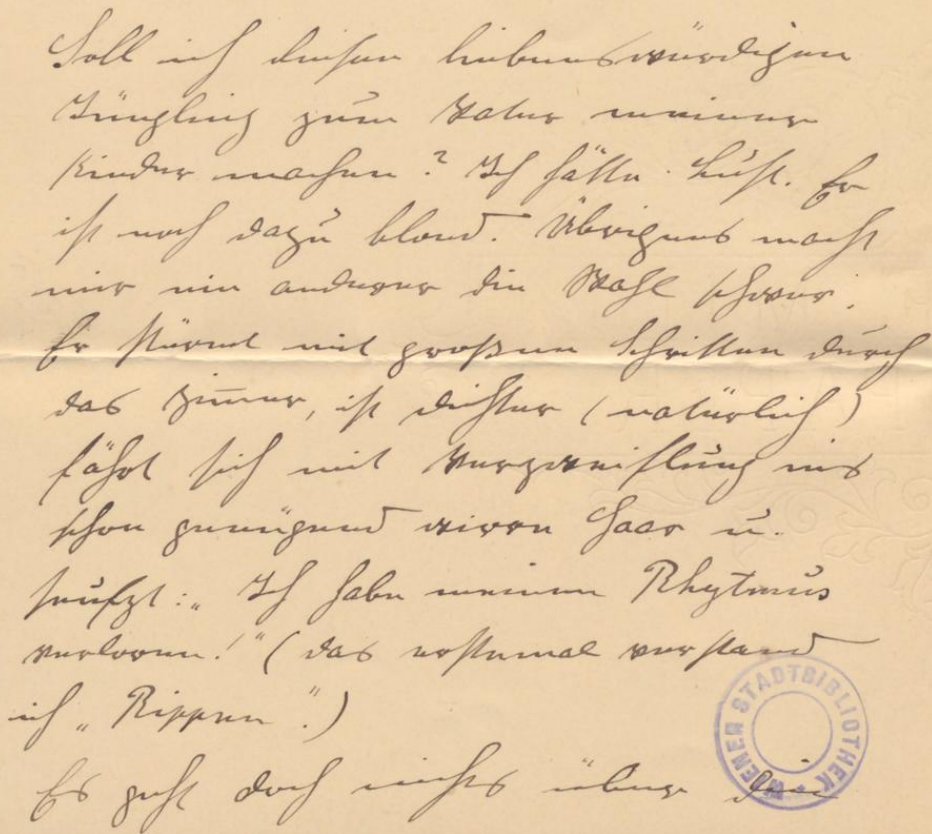 Soll ich diesen liebenswürdigen
Jüngling zum Vater meiner
Kinder machen? Ich hätte Lust. Er
ist noch dazu blond. Übrigens macht
mir ein anderer die Wahl schwer.
Er stürmt mit großen Schritten durch
das Zimmer, ist Dichter (natürlich)
fährt sich mit Verzweiflung ins
schon genügend wirre Haar u.
seufzt: „Ich habe meinen Rhytmus
verloren!" (das erstemal verstand
ich „Rippen".)
Es geht doch nichts über
WIENER STADTBIBLIOTHEK